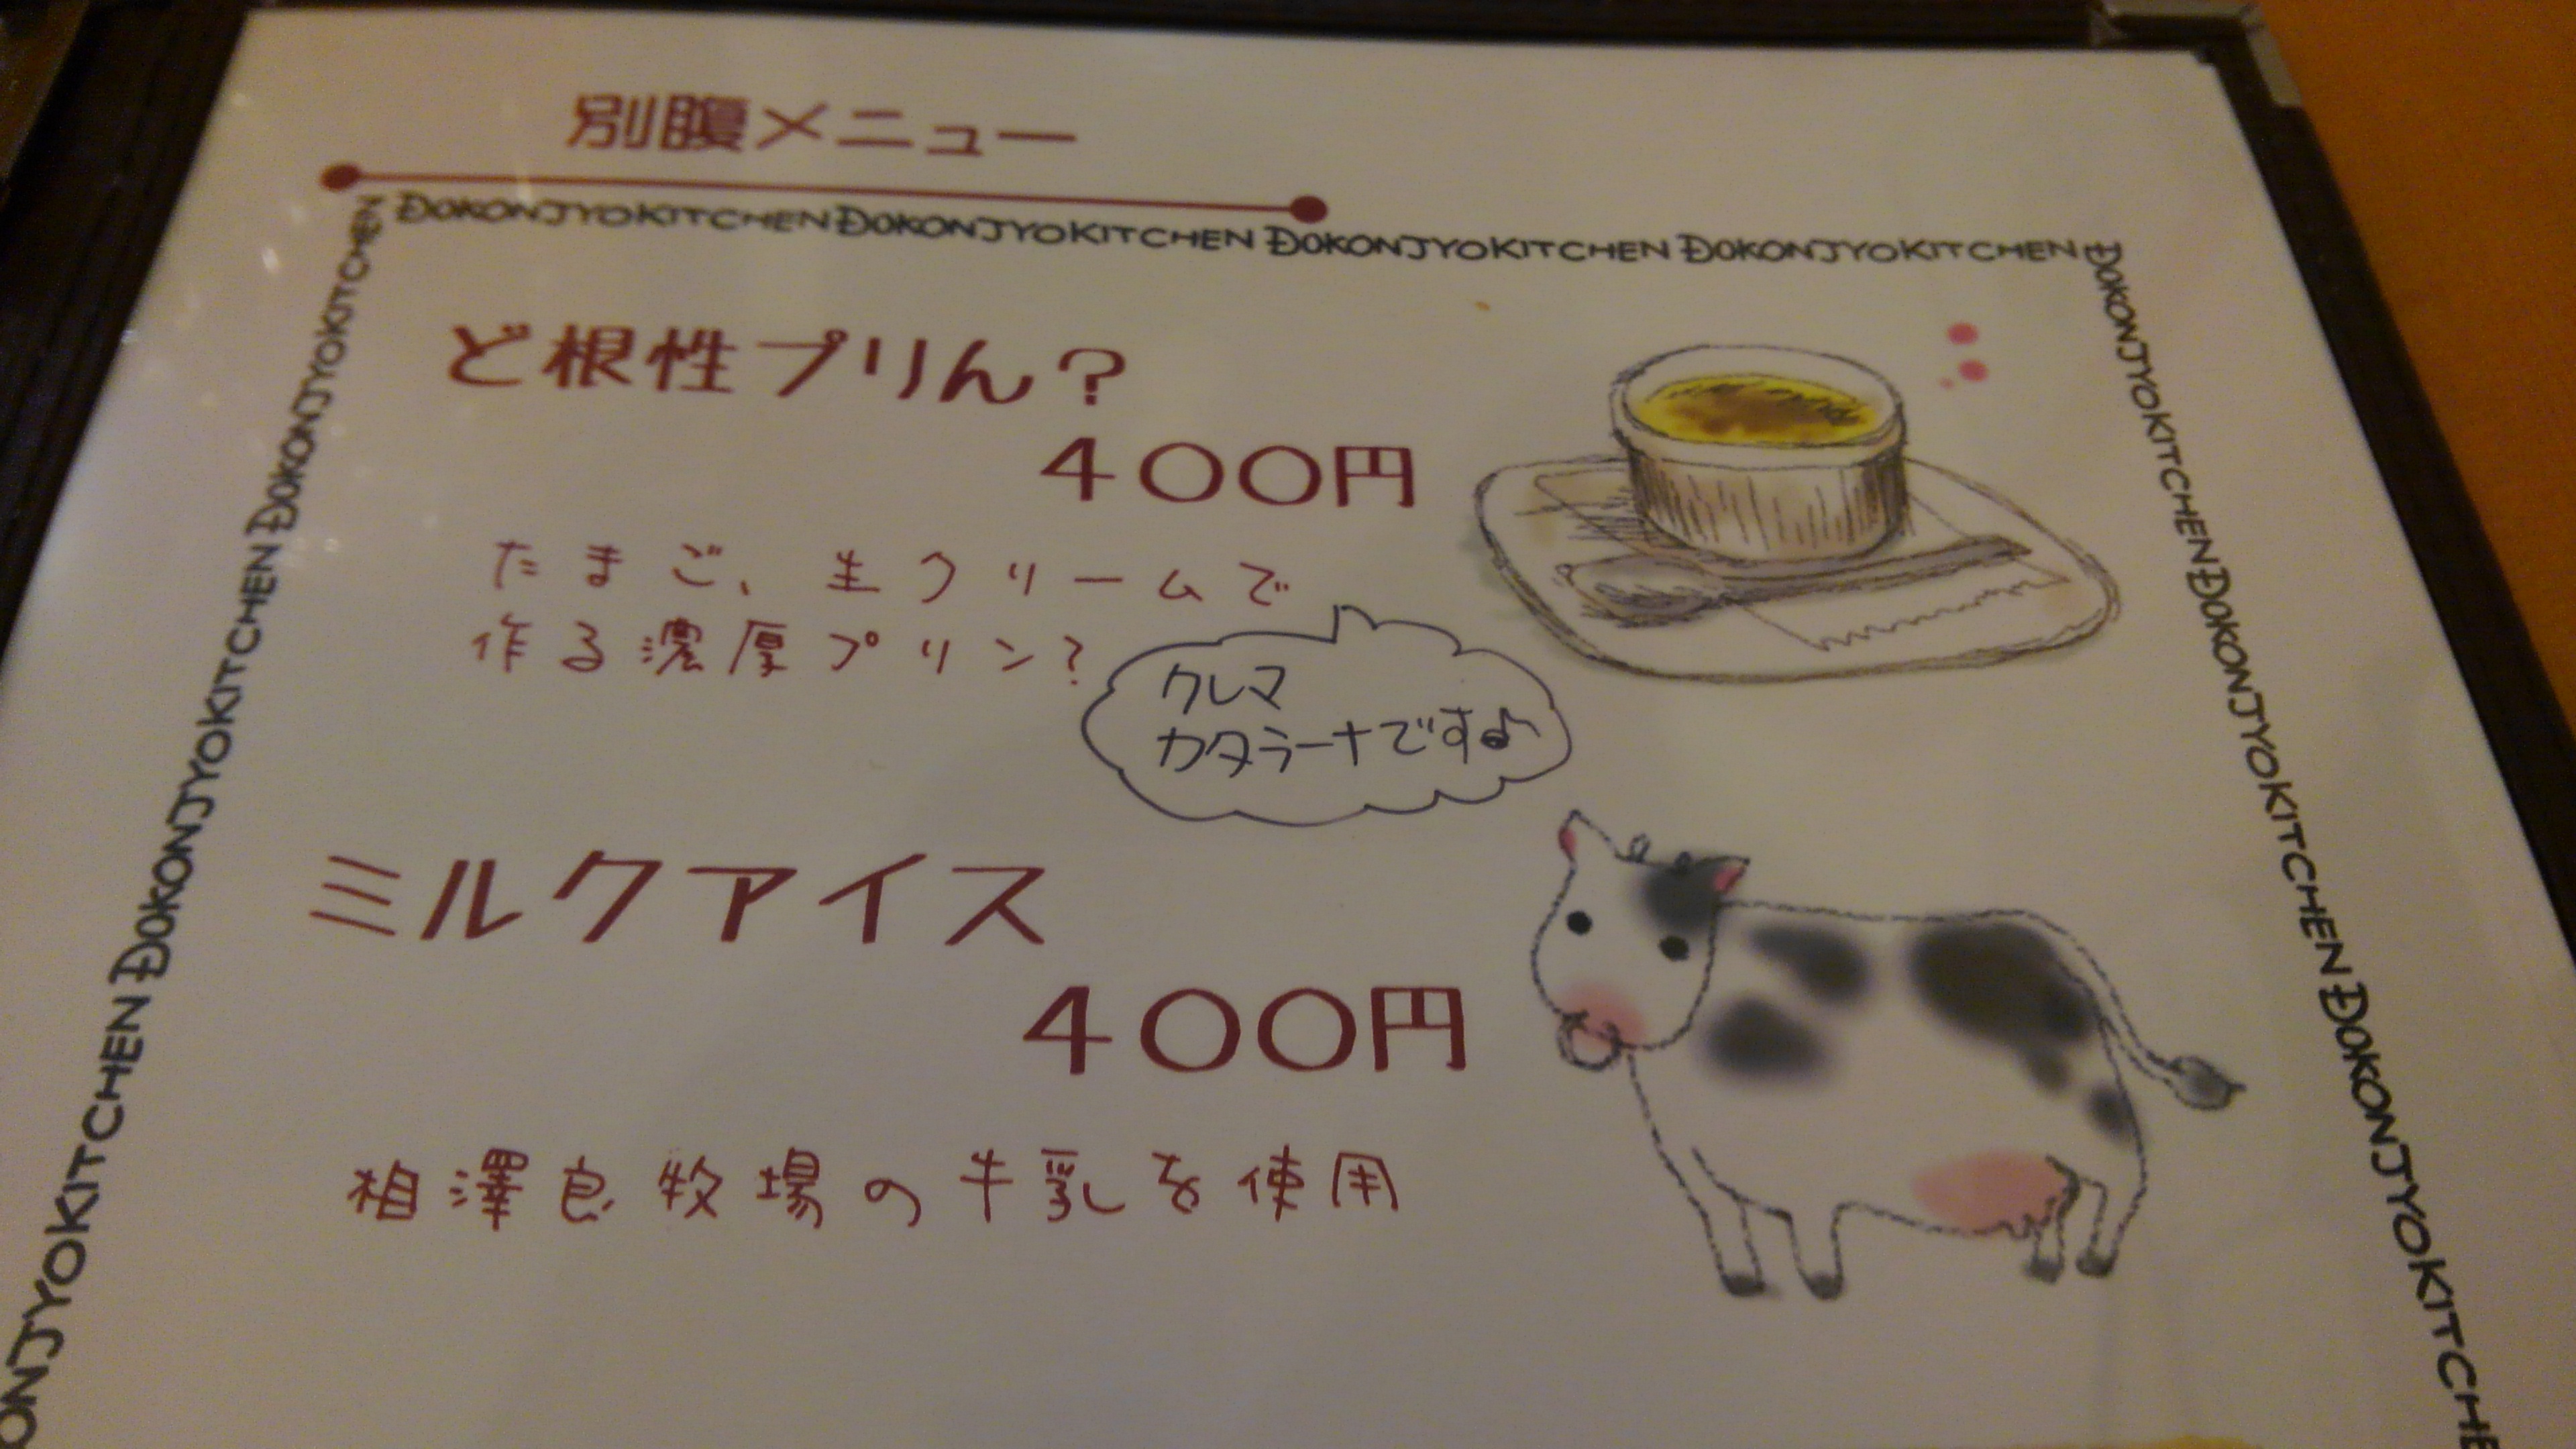 別腹メニュー
DOKONJYOKITCHEN DOKONJYOKITCHEN DOKONJYOKITCHEN DOKONJYOKITCHEN
ど根性プリん？
４００円
たまご、生クリームで
作る濃厚プリン？
クレマ
カタラーナです♪
ミルクアイス
４００円
相澤良牧場の牛乳を使用
ONJYOKITCHEN DOKONJYOKITCHEN DOKONJYOKITCHEN
DOKONJYOKITCHEN DOKONJYOKITCHEN DOKONJYOKITCHE